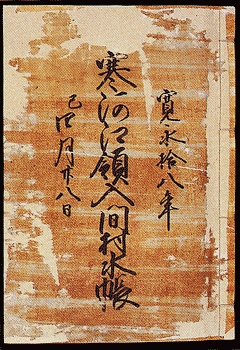 寛永拾八年
寒河江領入間村水帳
巳四月廿八日